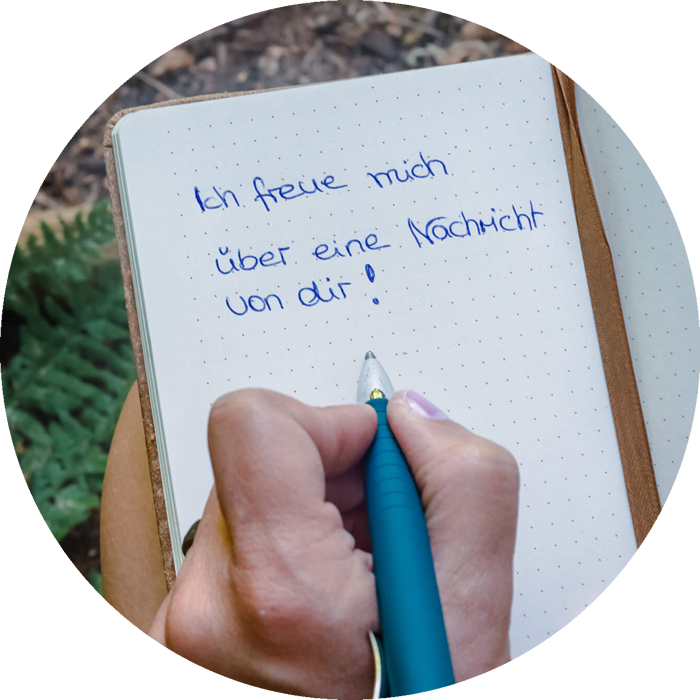 Ich freue mich
über eine Nachricht
von dir!